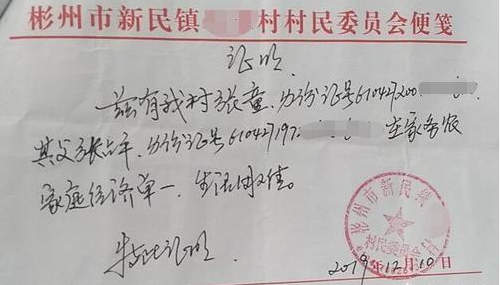 彬州市新民镇 村村民委员会便笺
证明
兹有我村张童,身份证号610427200
其父张占平,身份证号610427197 在家务农
家庭经济单一,生活困难。
特此证明
彬州市新民镇
村民委员会
2019年12月10日